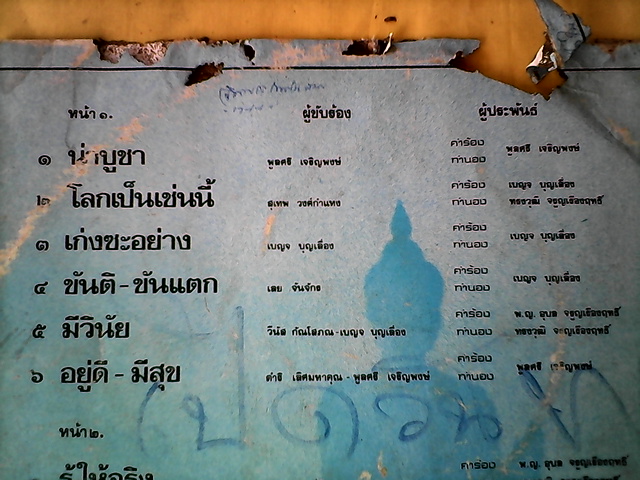 หน้า ๑. ผู้ขับร้อง ผู้ประพันธ์
๑ น่าบูชา พูลศรี เจริญพงษ์ คำร้อง ทำนอง พูลศรี เจริญพงษ์
๒ โลกเป็นเช่นนี้ สุเทพ วงศ์กำแหง คำร้อง เบญจ บุญเลื่อง
ทำนอง ทรงวุฒิ จรูญเรืองฤทธิ์
๓ เก่งซะอย่าง เบญจ บุญเลื่อง คำร้อง ทำนอง เบญจ บุญเลื่อง
๔ ขันติ - ขันแตก เลย จันจักร คำร้อง ทำนอง เบญจ บุญเลื่อง
๕ มีวินัย วินัส กัณโสภณ - เบญจ บุญเลื่อง คำร้อง พ.ญ. อุบล จรูญเรืองฤทธิ์
ทำนอง ทรงวุฒิ จรูญเรืองฤทธิ์
๖ อยู่ดี - มีสุข ดำริ เลิศมหาคุณ - พูลศรี เจริญพงษ์ คำร้อง ทำนอง พูลศรี เจริญพงษ์
หน้า ๒.
รู้ให้จริง คำร้อง พ.ญ. อุบล จรูญเรืองฤทธิ์